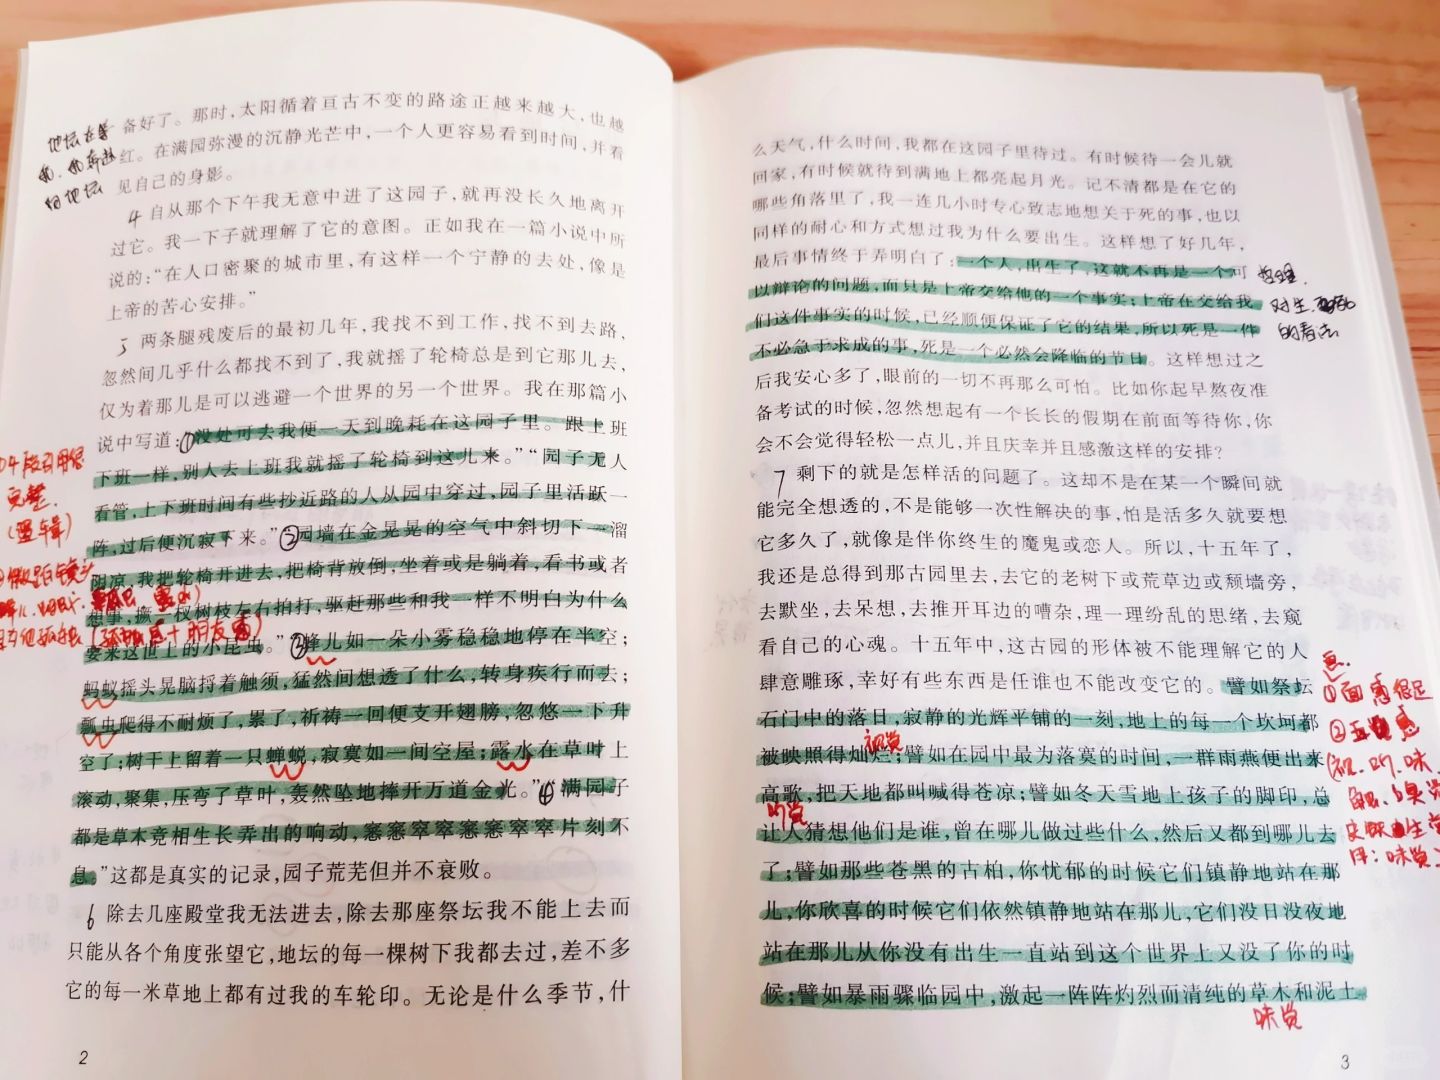 备好了。那时,太阳循着亘古不变的路途正越来越大,也越
红。在满园弥漫的沉静光芒中,一个人更容易看到时间,并看
见自己的身影。
地坛在等
我,我奔赴
向地坛
4 自从那个下午我无意中进了这园子,就再没长久地离开
过它。我一下子就理解了它的意图。正如我在一篇小说中所
说的:“在人口密聚的城市里,有这样一个宁静的去处,像是
上帝的苦心安排。”
5 两条腿残废后的最初几年,我找不到工作,找不到去路,
忽然间几乎什么都找不到了,我就摇了轮椅总是到它那儿去,
仅为着那儿是可以逃避一个世界的另一个世界。我在那篇小
说中写道:①“没处可去我便一天到晚耗在这园子里。跟上班
下班一样,别人去上班我就摇了轮椅到这儿来。”“园子无人
看管,上下班时间有些抄近路的人从园中穿过,园子里活跃一
阵,过后便沉寂下来。”②“园墙在金晃晃的空气中斜切下一溜
阴凉,我把轮椅开进去,把椅背放倒,坐着或是躺着,看书或者
想事,撅一杈树枝左右拍打,驱赶那些和我一样不明白为什么
要来这世上的小昆虫。”③“蜂儿如一朵小雾稳稳地停在半空;
蚂蚁摇头晃脑捋着触须,猛然间想透了什么,转身疾行而去;
瓢虫爬得不耐烦了,累了,祈祷一回便支开翅膀,忽悠一下升
空了;树干上留着一只蝉蜕,寂寞如一间空屋;露水在草叶上
滚动,聚集,压弯了草叶,轰然坠地摔开万道金光。”④“满园子
都是草木竞相生长弄出的响动,窸窸窣窣窸窸窣窣片刻不
息。”这都是真实的记录,园子荒芜但并不衰败。
6 除去几座殿堂我无法进去,除去那座祭坛我不能上去而
只能从各个角度张望它,地坛的每一棵树下我都去过,差不多
它的每一米草地上都有过我的车轮印。无论是什么季节,什
4段引用很
完整.
(逻辑)
镜头
2
么天气,什么时间,我都在这园子里待过。有时候待一会儿就
回家,有时候就待到满地上都亮起月光。记不清都是在它的
哪些角落里了,我一连几小时专心致志地想关于死的事,也以
同样的耐心和方式想过我为什么要出生。这样想了好几年,
最后事情终于弄明白了:一个人,出生了,这就不再是一个可
以辩论的问题,而只是上帝交给他的一个事实;上帝在交给我
们这件事实的时候,已经顺便保证了它的结果,所以死是一件
不必急于求成的事,死是一个必然会降临的节日。这样想过之
后我安心多了,眼前的一切不再那么可怕。比如你起早熬夜准
备考试的时候,忽然想起有一个长长的假期在前面等待你,你
会不会觉得轻松一点儿,并且庆幸并且感激这样的安排?
哲理.
对生
的看法
7 剩下的就是怎样活的问题了。这却不是在某一个瞬间就
能完全想透的,不是能够一次性解决的事,怕是活多久就要想
它多久了,就像是伴你终生的魔鬼或恋人。所以,十五年了,
我还是总得到那古园里去,去它的老树下或荒草边或颓墙旁,
去默坐,去呆想,去推开耳边的嘈杂,理一理纷乱的思绪,去窥
看自己的心魂。十五年中,这古园的形体被不能理解它的人
肆意雕琢,幸好有些东西是任谁也不能改变它的。譬如祭坛
石门中的落日,寂静的光辉平铺的一刻,地上的每一个坎坷都
被映照得灿烂;譬如在园中最为落寞的时间,一群雨燕便出来
高歌,把天地都叫喊得苍凉;譬如冬天雪地上孩子的脚印,总
让人猜想他们是谁,曾在哪儿做过些什么,然后又都到哪儿去
了;譬如那些苍黑的古柏,你忧郁的时候它们镇静地站在那
儿,你欣喜的时候它们依然镇静地站在那儿,它们没日没夜地
站在那儿从你没有出生一直站到这个世界上又没了你的时
候;譬如暴雨骤临园中,激起一阵阵灼烈而清纯的草木和泥土
视觉
听觉
味觉
画
①面感很足
②五觉感
(视.听.味
3